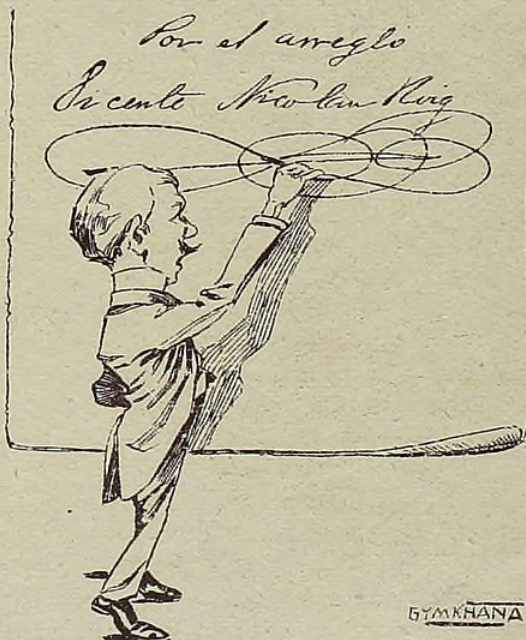 Por el arreglo
Vicente Nicolau Roig
GYMKHANA